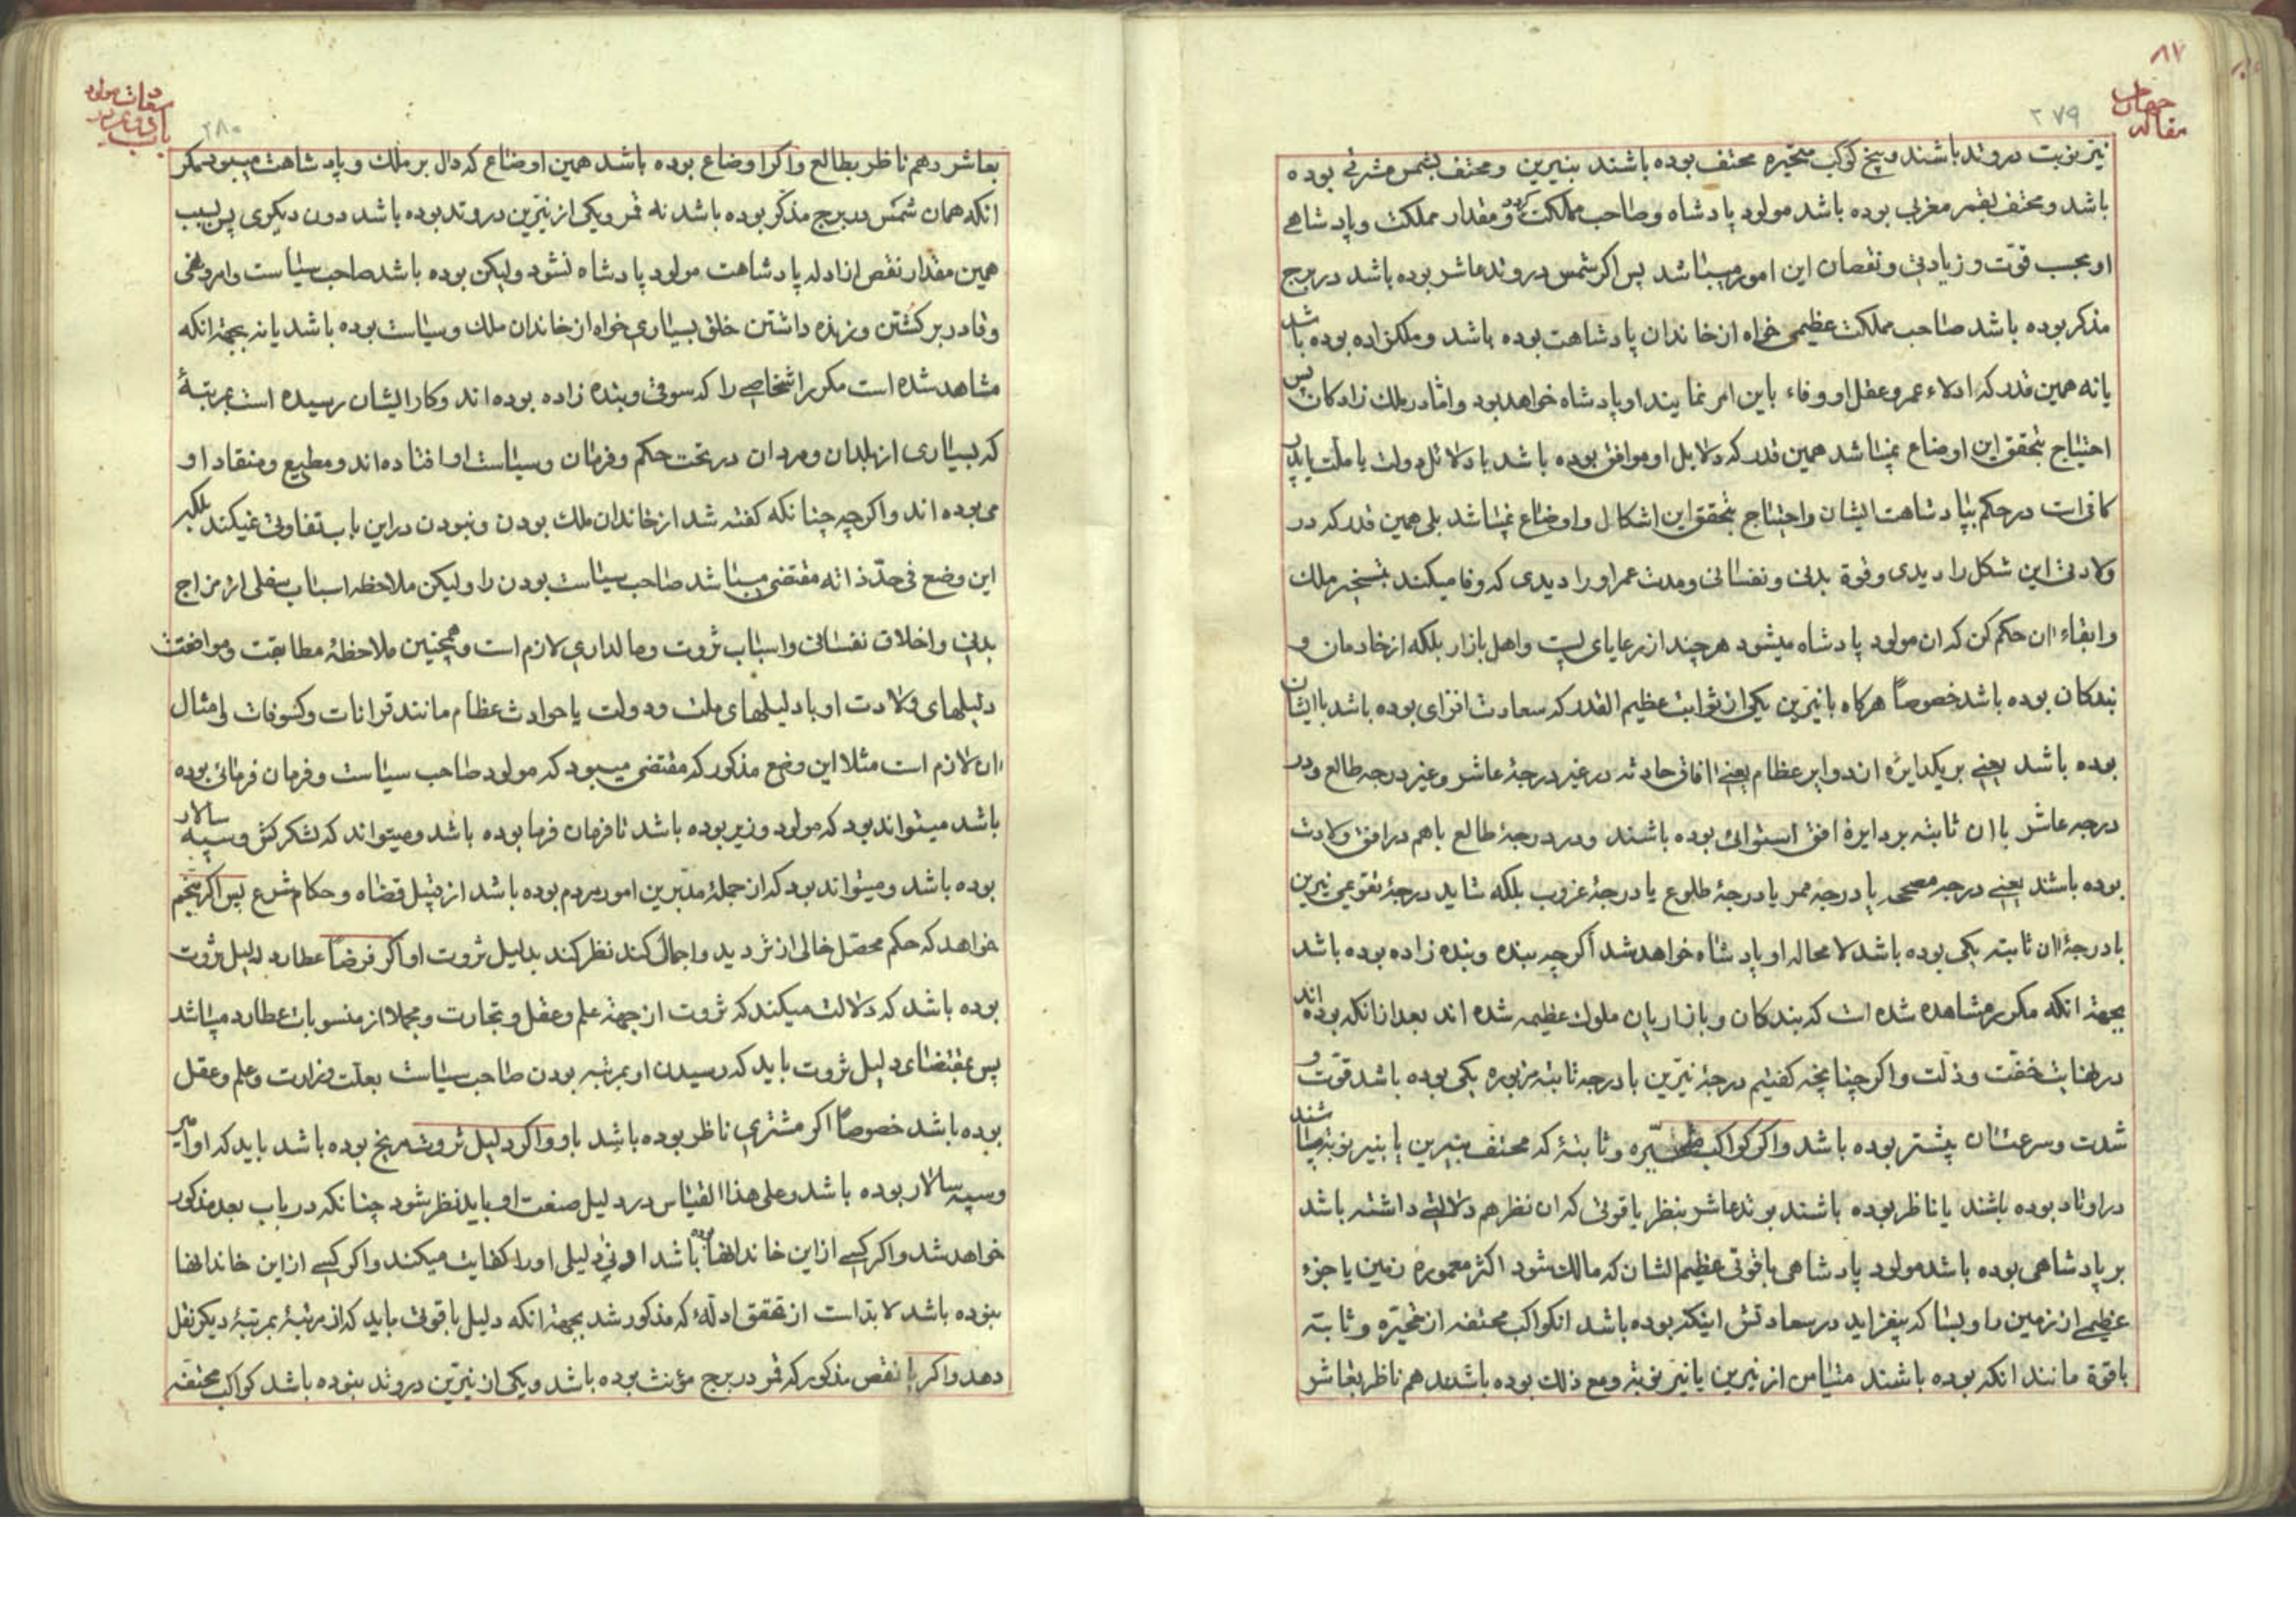 ۸۷
۲۷۹
مقاله چهارم
نیّر نوبت در وتد باشند و پنج کوکب متحیّره محتف بوده باشند بنیرین و محتف بشمس مشرقی بوده
باشد و محتف بقمر مغربی بوده باشد مولود پادشاه و صاحب مملکت کردد و مقدار مملکت و پادشاهی
او بحسب قوّت و زیادتی و نقصان این امور میباشد پس اکر شمس در وتد عاشر بوده باشد در برج
مذکر بوده باشد صاحب مملکت عظیمی خواه از خاندان پادشاهت بوده باشد و ملکزاده بوده باشد
یا نه همین قدر که ادلاء عمر و عقل او وفاء باین امر نمایند او پادشاه خواهد بود و امّا در ملک زادکان پس
احتیاج بتحقق این اوضاع نمیباشد همین قدر که دلایل او موافق بوده باشد با دلائل دولت یا ملّت یا پدر
کافی است در حکم بپادشاهت ایشان و احتیاج بتحقق این اشکال و اوضاع نمیباشد بلی همین قدر که در
ولادتی این شکل را دیدی و قوة بدنی و نفسانی و مدت عمر او را دیدی که وفا میکند بتسخیر ملک
و ابقاء ان حکم کن که ان مولود پادشاه میشود هر چند از رعایای پست و اهل بازار بلکه از خادمان و
بندکان بوده باشد خصوصاً هرکاه با نیّرین یکی از ثوابت عظیم القدر که سعادت افزای بوده باشد با ایشان
بوده باشد یعنی بر یکدایره اند دوایر عظام یعنی افاق حادثه در غیر درجهٔ عاشر و غیر درجه طالع و در
درجه عاشر با ان ثابته بر دایرهٔ افق استوائی بوده باشند و در درجهٔ طالع باهم در افق ولادت
بوده باشند یعنی درجه مصححه یا درجه ممر یا درجهٔ طلوع یا درجهٔ غروب بلکه شاید درجهٔ تقویمی نیرین
با درجهٔ ان ثابته یکی بوده باشد لا محاله او پادشاه خواهد شد اکرچه بنده و بنده زاده بوده باشد
بجهة انکه مکرر مشاهده شده است که بندکان و بازاریان ملوک عظیمه شده اند بعد از انکه بوده اند
در نهایت خفّت و ذلّت و اکر چنانچه کفتیم درجهٔ نیّرین با درجه ثابته مزبوره یکی بوده باشد قوّت و
شدت و سرعتشان بیشتر بوده باشد و اکر کواکب متحیّره و ثابتهٔ که محتف بنیرین یا بنیر نوبة میباشند
در اوتاد بوده باشند یا ناظر بوده باشند بوتد عاشر بنظر با قوتی که ان نظر هم دلالتی داشته باشد
بر پادشاهی بوده باشد مولود پادشاهی با قوتی عظیم الشان که مالک شود اکثر معمورهٔ زمین یا جزء
عظیمی از زمین را و بسا که بیفزاید در سعادتش اینکه بوده باشد انکواکب محتفه از متحیّره و ثابته
با قوّة مانند انکه بوده باشند متیامن از نیرین یا نیر نوبة و مع ذلک بوده باشند هم ناظر بعاشر
۲۸۰
بعاشر و هم ناظر بطالع و اکر اوضاع بوده باشد همین اوضاع که دال بر ملک و پادشاهت میبود مکر
انکه همان شمس در برج مذکّر بوده باشد نه قمر و یکی از نیّرین در وتد بوده باشد دون دیکری پس بسبب
همین مقدار نقص از ادله پادشاهت مولود پادشاه نشود ولیکن بوده باشد صاحب سیاست و امر و نهی
و قادر بر کشتن و زنده داشتن خلق بسیاری خواه از خاندان ملک و سیاست بوده باشد یا نه بجهة انکه
مشاهد شده است مکرر اشخاصی را که سوقی و بنده زاده بوده اند و کار ایشان رسیده است بمرتبهٔ
که بسیاری از بلدان و مردان در تحت حکم و فرمان و سیاست او افتاده اند و مطیع و منقاد او
می بوده اند و اکرچه چنانکه کفته شد از خاندان ملک بودن و نبودن در این باب تفاوتی نمیکند بلکه
این وضع فی حدّ ذاته مقتضی میباشد صاحب سیاست بودن را ولیکن ملاحظه اسباب سفلی از مزاج
بدنی و اخلاق نفسانی و اسباب ثروت و مالداری لازم است و همچنین ملاحظهٔ مطابقت و موافقت
دلیلهای ولادت او با دلیلهای ملت و دولت یا حوادث عظام مانند قرانات و کسوفات و امثال
ان لازم است مثلا این وضع مذکور که مقتضی میبود که مولود صاحب سیاست و فرمان فرمائی بوده
باشد میتواند بود که مولود وزیر بوده باشد تا فرمان فرما بوده باشد و میتواند که لشکر کش و سپه سالار
بوده باشد و میتواند بود که از جملهٔ مدبّرین امور مردم بوده باشد از قبیل قضاة و حکام شرع پس اکر منجّم
خواهد که حکم محصّل خالی از تردید و اجمال کند نظر کند بدلیل ثروت او اکر فرضاً عطارد دلیل ثروت
بوده باشد که دلالت میکند که ثروت از جهة علم و عقل و تجارت و مجملا از منسوبات عطارد میباشد
پس بمقتضای دلیل ثروت باید که رسیدن او بمرتبه بودن صاحب سیاست بعلّت وزارت و علم و عقل
بوده باشد خصوصاً اکر مشتری ناظر بوده باشد باو و اکر دلیل ثروت مریخ بوده باشد باید که او امیر
و سپه سالار بوده باشد و علی هذا القیاس در دلیل صنعت او باید نظر شود چنانکه در باب بعد مذکور
خواهد شد و اکر کسی از این خاندانها بوده باشد ادنی دلیلی او را کفایت میکند و اکر کسی از این خاندانها
نبوده باشد لا بدّ است از تحقق ادلّهٔ که مذکور شد بجهة انکه دلیل با قوتی باید که از مرتبهٔ بمرتبهٔ دیکر نقل
دهد و اکر با نقص مذکور که قمر در برج مؤنث بوده باشد و یکی از نیّرین در وتد نبوده باشد کواکب محتفّه